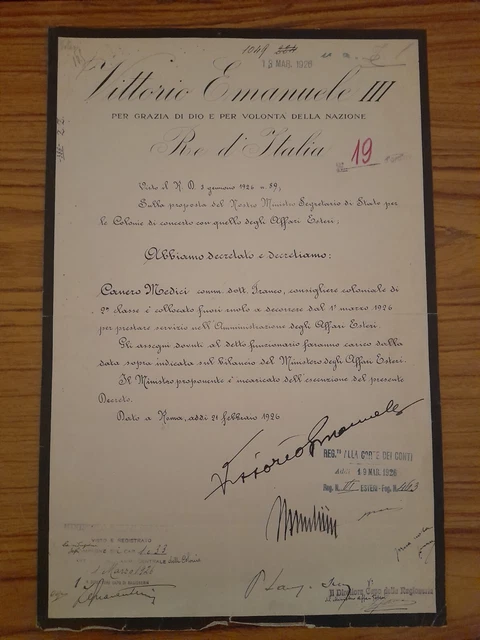 1049
15 MAR. 1926
Vittorio Emanuele III
PER GRAZIA DI DIO E PER VOLONTÀ DELLA NAZIONE
Re d'Italia
19
Visto il R. D. 3 gennaio 1926 n. 89;
Sulla proposta del Nostro Ministro Segretario di Stato per
le Colonie di concerto con quello degli Affari Esteri;
Abbiamo decretato e decretiamo:
Canero Medici comm. dott. Franco, consigliere coloniale di
2ª classe è collocato fuori ruolo a decorrere dal 1° marzo 1926
per prestare servizio nell'Amministrazione degli Affari Esteri.
Gli assegni dovuti al detto funzionario faranno carico dalla
data sopra indicata sul bilancio del Ministero degli Affari Esteri.
Il Ministro proponente è incaricato dell'esecuzione del presente
Decreto.
Dato a Roma, addì 21 febbraio 1926
Vittorio Emanuele
REG.TO ALLA CORTE DEI CONTI
addì 19 MAR. 1926
Reg. N. VI ESTERI - Fog. N. 163
Mussolini
Il Direttore Capo della Ragioneria